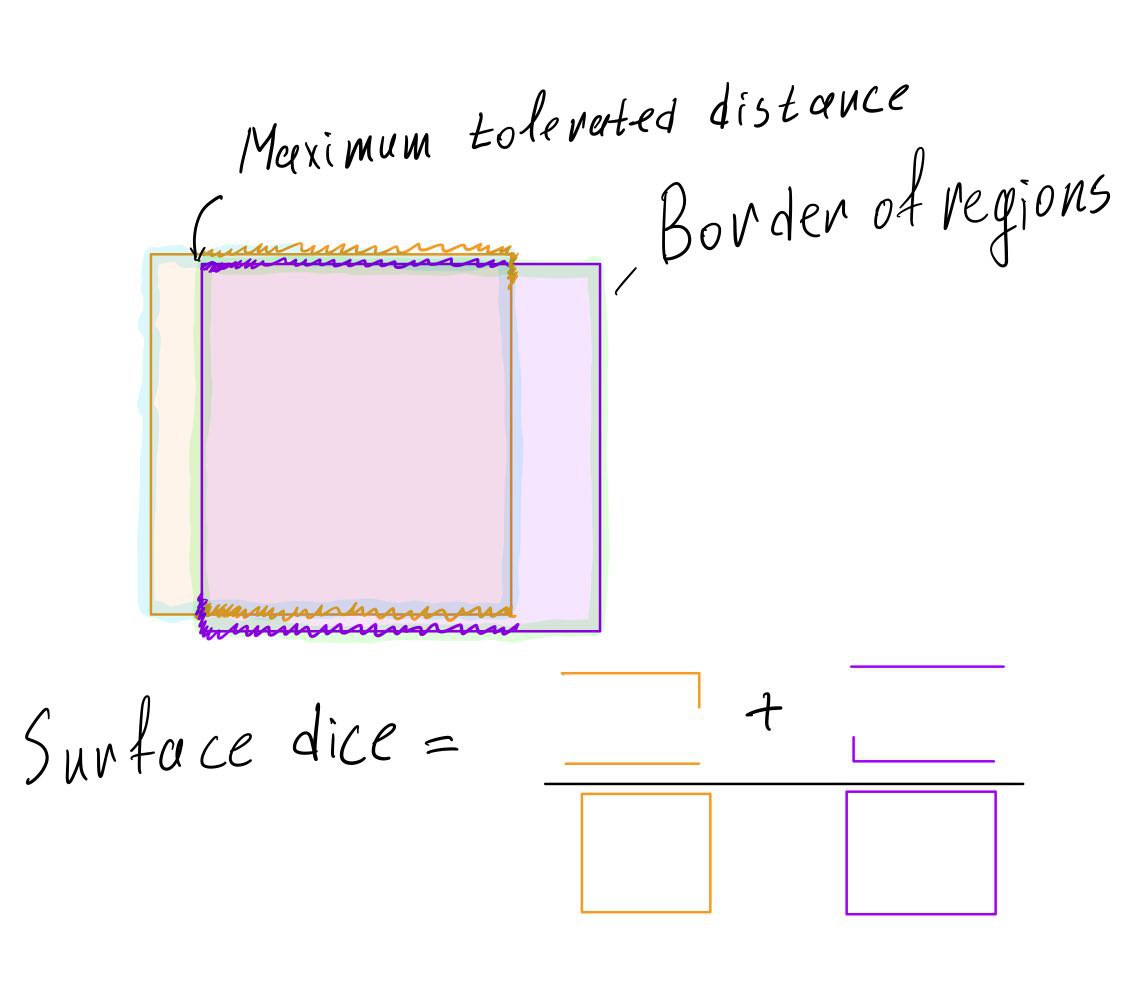 Maximum tolerated distance
Border of regions
Surface dice =
+